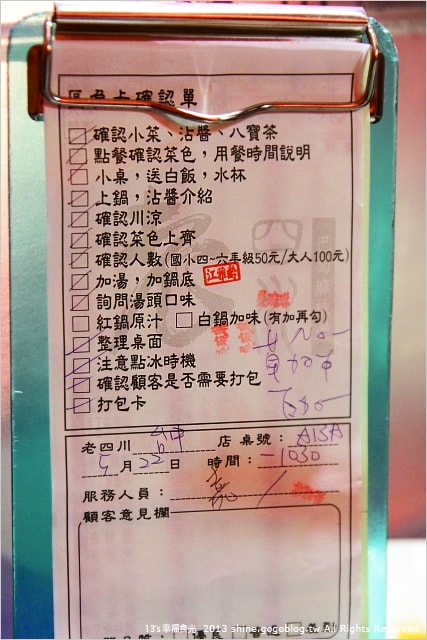 上確認單
確認小菜、沾醬、八寶茶
點餐確認菜色，用餐時間說明
小桌，送白飯，水杯
上鍋，沾醬介紹
確認川涼
確認菜色上齊
確認人數(國小四~六年級50元/大人100元)
加湯，加鍋底
詢問湯頭口味
紅鍋原汁 白鍋加味(有加再勾)
整理桌面
注意點冰時機
確認顧客是否需要打包
打包卡
老四川 台中 店 桌號：A15A
5月22日 時間：-1030
服務人員：
顧客意見欄
13's幸福食光 2013 shine.gogoblog.tw All Rights Reserved